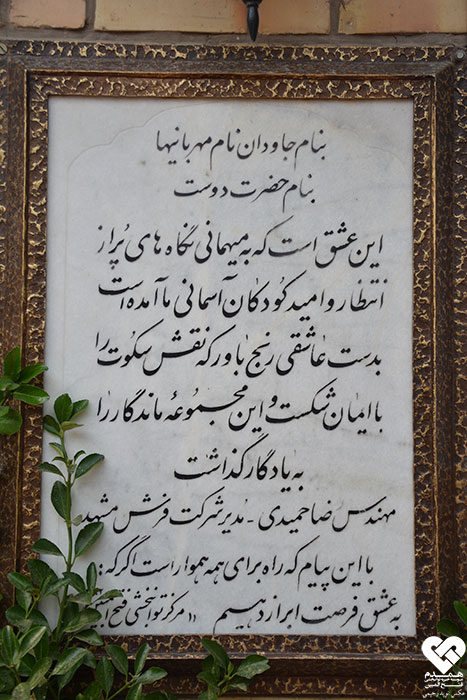 بنام جاودان نام مهربانیها
بنام حضرت دوست
این عشق است که به میهمانی نگاه های پُر از
انتظار و امید کودکان آسمانی ما آمده است
بدست عاشقی رنج باور که نقش سکوت را
با ایمان شکست و این مجموعهٔ ماندگار را
به یادگار گذاشت
مهندس رضا حمیدی - مدیر شرکت فرش مشهد
با این پیام که راه برای همه هموار است اگر که:
به عشق فرصت ابراز دهیم " مرکز توانبخشی فتح المبین
همدم